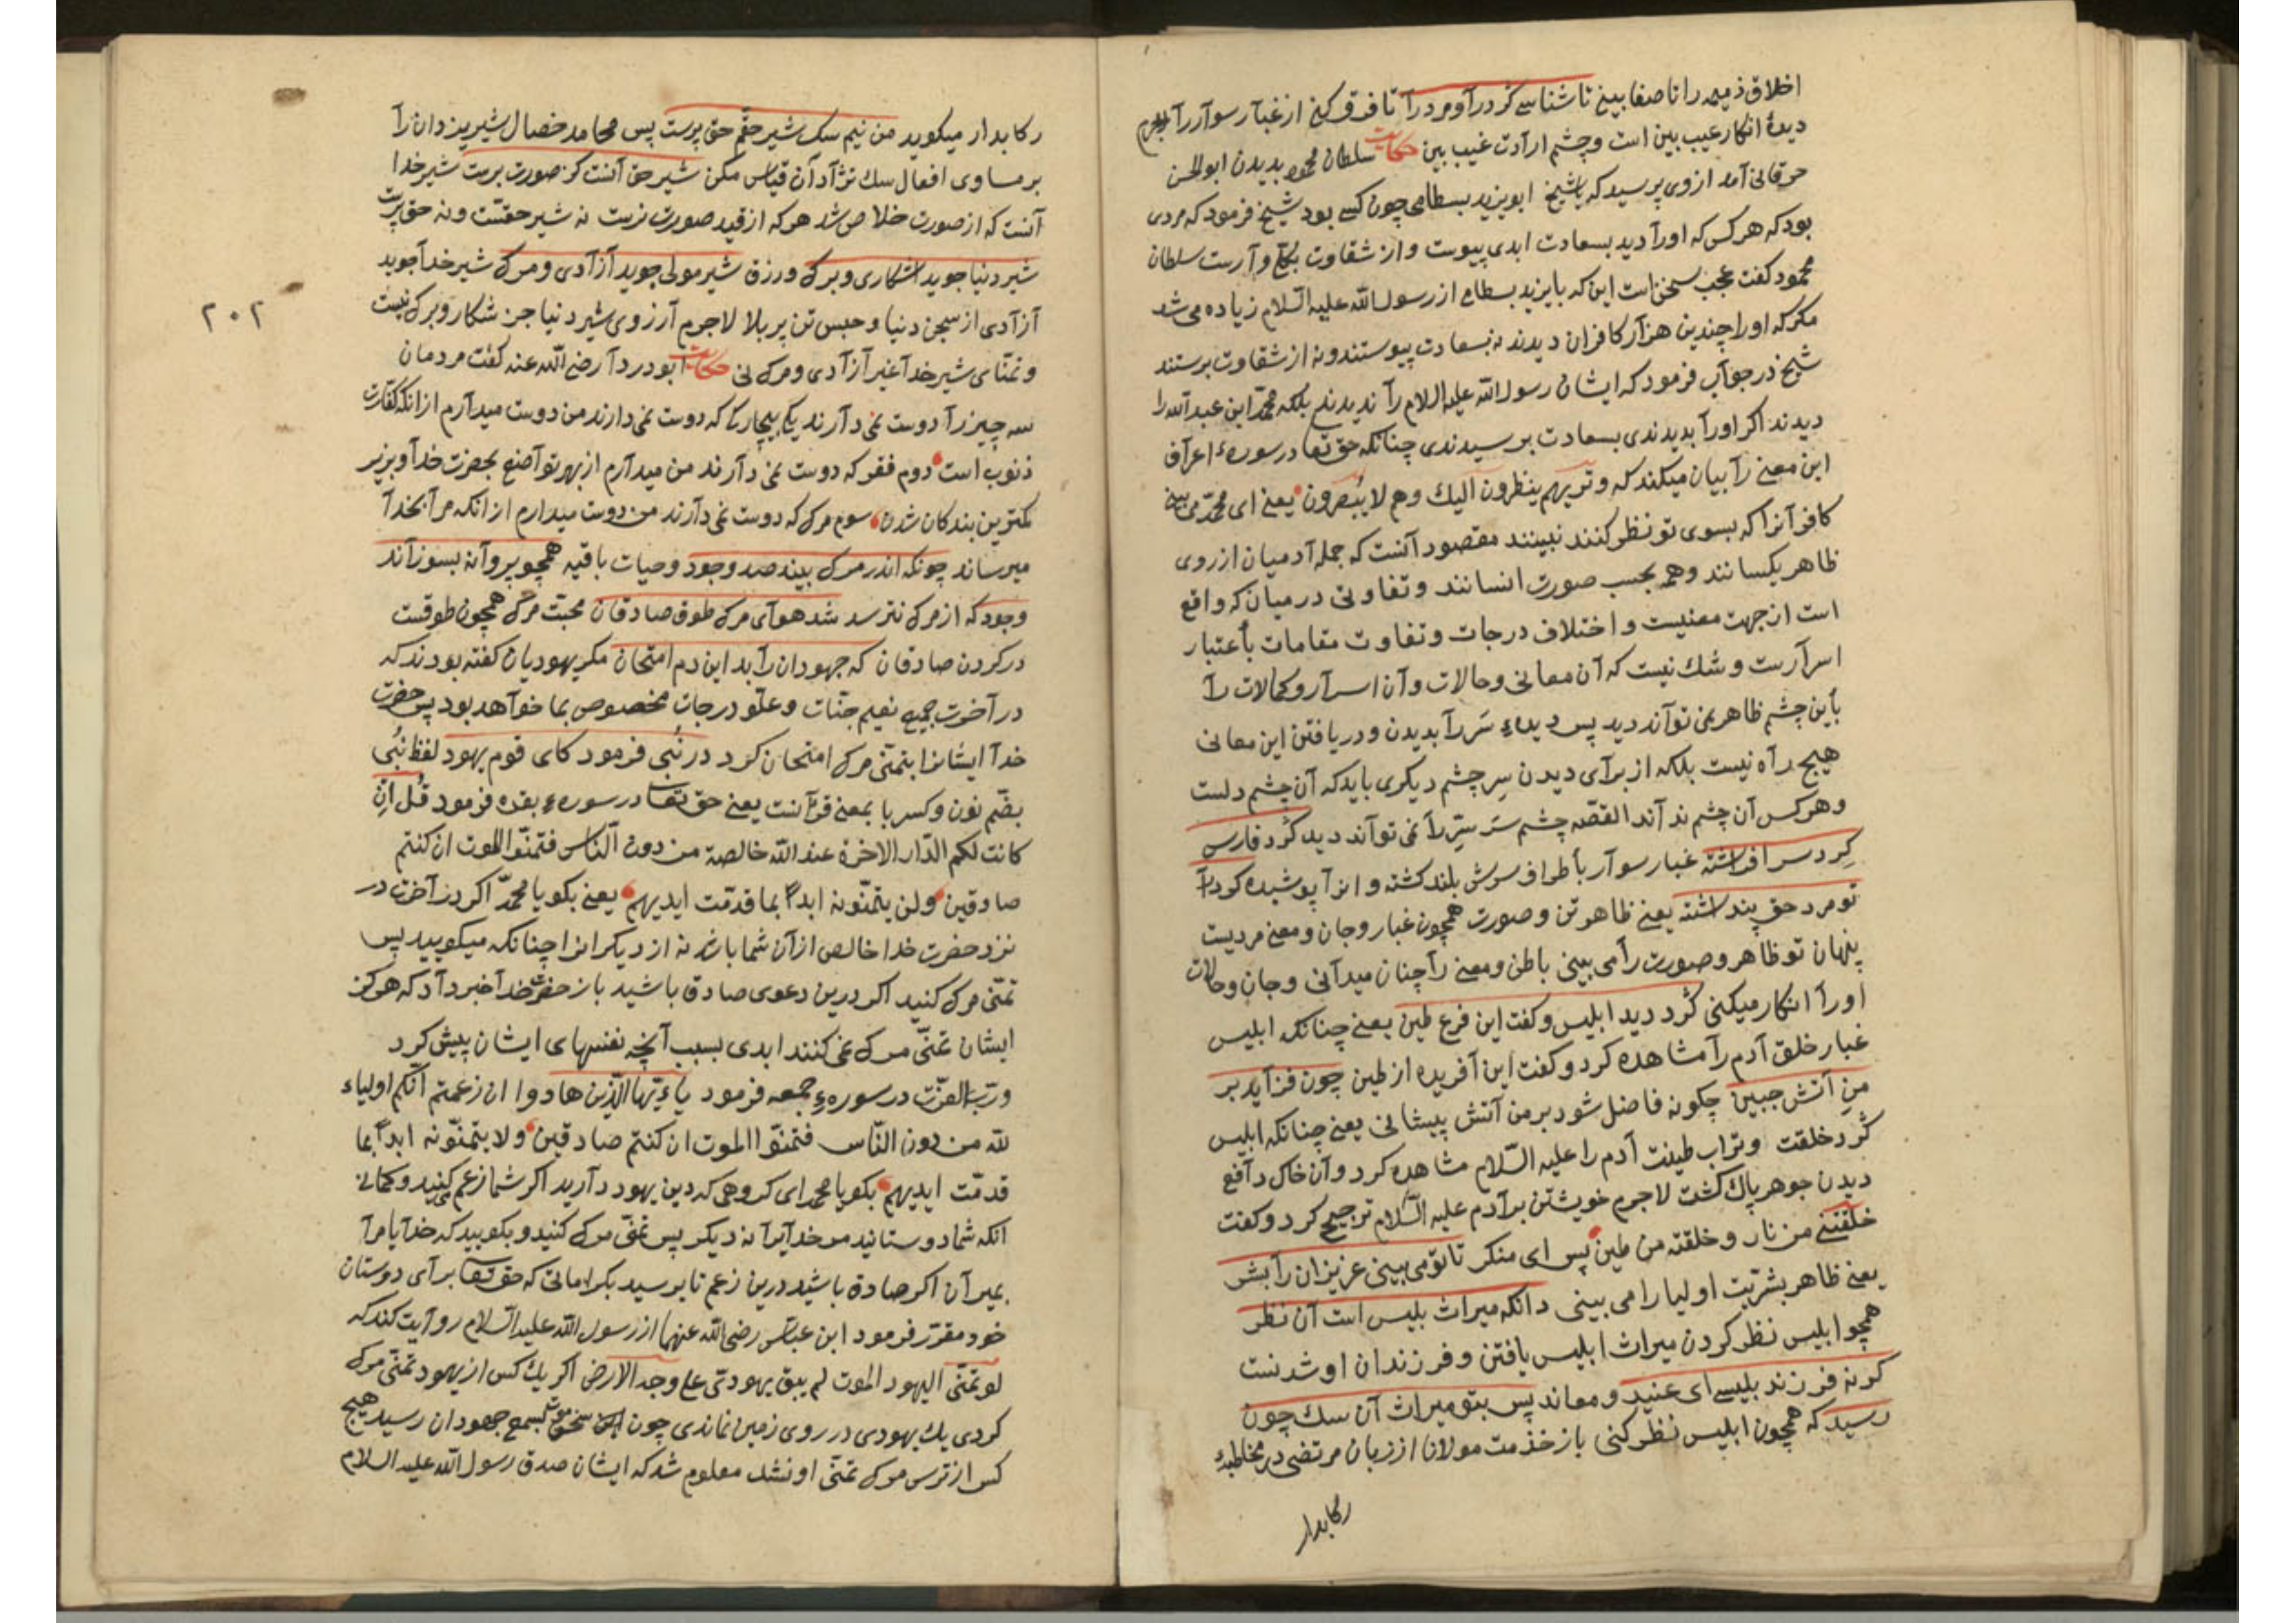 اخلاق ذمیمه را تا صفا بینی تا شناسی گرد را و مرد را تا فرق کنی از غبار سوار را لاجرم
دیدهٔ انکار عیب بین است و چشم ارادت غیب بین حکایت سلطان محمود بدیدن ابوالحسن
خرقانی آمد از وی پرسید که یا شیخ ابویزید بسطامی چون کسی بود شیخ فرمود که مردی
بود که هر کس که اورا دید بسعادت ابدی پیوست و از شقاوت بکلی وارست سلطان
محمود کفت عجب سخن است این که بایزید بسطامی از رسول الله علیه السّلام زیاده می شد
مکر که اورا چندین هزار کافران دیدند نه بسعادت پیوستند و نه از شقاوت برستند
شیخ در جواب فرمود که ایشان رسول الله علیه السلام را ندیدند بلکه محمّد ابن عبد الله را
دیدند اکر اورا بدیدندی بسعادت برسیدندی چنانکه حق تعا در سورهٔ اعراف
این معنی را بیان میکند که وتریهم ینظرون الیك وهم لا یبصرون یعنی ای محمّد می بینی
کافرانرا که بسوی تو نظر کنند نبینند مقصود آنست که جمله آدمیان از روی
ظاهر یکسانند وهمه بحسب صورت انسانند وتفاوتی در میان که واقع
است از جهت معنیست و اختلاف درجات وتفاوت مقامات بأعتبار
اسرارست وشك نیست که آن معانی وحالات وآن اسرار وکمالات را
بأین چشم ظاهر نمی تواند دید پس دیدهء سَر را بدیدن ودریافتن این معانی
هیچ راه نیست بلکه از برای دیدن سِر چشم دیکری باید که آن چشم دلست
وهر کس آن چشم ندارد القصّه چشم سَر سِرّ را نمی تواند دید کَرد فارس
کرد سر افراشته غبار سوار بأطراف سرش بلند کشته و انرا پوشیده کرد را
تو مرد حق پنداشته یعنی ظاهر تن وصورت همچون غبار وجان ومعنی مردیست
پنهان تو ظاهر وصورت را می بینی باطن ومعنی را چنان میدانی وجان وحالات
اورا انکار میکنی کرد دید ابلیس وکفت این فرع طین یعنی چنانکه ابلیس
غبار خلق آدم را مشاهده کرد وکفت این آفریده از طین چون فزاید بر
من آتش جبین چکونه فاضل شود بر من آتش پیشانی یعنی چنانکه ابلیس
کرد خلقت وتراب طینت آدم را علیه السّلام مشاهده کرد وآن خاك دافع
دیدن جوهر پاك کشت لاجرم خویشتن بر آدم علیه السّلام ترجیح کرد وکفت
خلقتنی من نار وخلقته من طین پس ای منکر تا تو می بینی عزیزان را بشر
یعنی ظاهر بشریّت اولیا را می بینی دانکه میراث بلیس است آن نظر
همچو ابلیس نظر کردن میراث ابلیس یافتن وفرزندان او شدنست
کر نه فرزند بلیسی ای عنید ومعاند پس بتو میراث آن سك چون
رسید که همچون ابلیس نظر کنی باز خذمت مولانا از زبان مرتضی در مخاطبهٔ
رکابدار
رکابدار میکوید من نیم سك شیر حقم حق پرست پس محامد خصال شیر یزدان را
بر مساوی افعال سك نژادان قیاس مکن شیر حق آنست کز صورت برست شیر خدا
آنست که از صورت خلاص شد هر که از قید صورت نرست نه شیر حقست ونه حق پرست
شیر دنیا جوید اشکاری وبرك ورزق شیر مولی جوید آزادی ومرك شیر خدا جوید
آزادی از سجن دنیا وحبس تن پر بلا لاجرم آرزوی شیر دنیا جز شکار وبرك نیست
وتمنّای شیر خدا غیر آزادی ومرك نی حکایت ابو دردا رضی الله عنه کفت مردمان
سه چیز را دوست نمی دارند یکی بیماری که دوست نمی دارند من دوست میدارم از انکه کفّارت
ذنوب است دوم فقر که دوست نمی دارند من میدارم از بهر تواضع بحضرت خدا وبر نیز
کمترین بندکان شدن سوم مرك که دوست نمی دارند من دوست میدارم از انکه مرا بخدا
میرساند چونکه اندر مرك بیند صد وجود وحیات باقیه همچو پروانه بسوزاند
وجود که از مرك نترسد شد هوای مرك طوق صادقان محبّت مرك همچون طوقست
در کردن صادقان که جهودان را بد این دم امتحان مکر یهودیان کفته بودند که
در آخرت جمیع نعیم جنّات وعلوّ درجات مخصوص بما خواهد بود پس حضرت
خدا ایشانرا بتمنّی مرك امتحان کرد در نُبی فرمود کای قوم یهود لفظ نُبی
بضّم نون وکسر با بمعنی قرآنست یعنی حق تعا در سورهء بقره فرمود قُل اِن
کانت لکم الدّار الاخرة عند الله خالصة من دون النّاس فتمنّوا الموت ان کنتم
صادقین ولن یتمنّونه ابداً بما قدّمت ایدیهم یعنی بکو یا محمّد اکر در آخرت در
نزد حضرت خدا خالص از آن شما باشد نه از دیکرانرا چنانکه میکویید پس
تمنّی مرك کنید اکر درین دعوی صادق باشید باز حضرت خدا خبر داد که هرکز
ایشان تمنّی مرك نمی کنند ابدی بسبب آنچه نفسهای ایشان پیش کرد
وربّ العزّت در سورهء جمعه فرمود یاءیّها الّذین هادوا ان زعمتم انّکم اولیاء
لله من دون النّاس فتمنّوا الموت ان کنتم صادقین ولا یتمنّونه ابداً بما
قدمّت ایدیهم بکو یا محمد ای کروهی که دین یهود دارید اکر شما زعم می کنید وکمان
انکه شما دوستانید مر خدایرا نه دیکر پس تمنّی مرك کنید و بکویید که خدایا مرا
بمیران اکر صادق باشید درین زعم تا برسید بکراماتی که حق تعا برای دوستان
خود مقرّر فرمود ابن عبّاس رضی الله عنهما از رسول الله علیه السّلام روایت کند که
لو تمنّی الیهود الموت لم یبق یهودیّ علی وجه الارض اکر یك کس از یهود تمنّی مرك
کردی یك یهودی در روی زمین نماندی چون این سخن بسمع جهودان رسید هیچ
کس از ترس مرك تمنّی او نشد معلوم شد که ایشان صدق رسول الله علیه السلام
٢٠٢